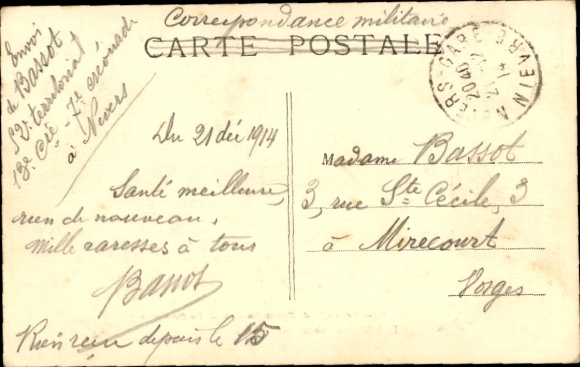 Correspondance militaire
CARTE POSTALE
Envoi
de Bassot
52e territorial
13e Cie - 7e escouade
à Nevers
NEVERS-GARE NIEVRE
2040
21-12
14
Du 21 déc 1914
Santé meilleure,
rien de nouveau.
Mille caresses à tous
Bassot
Rien reçu depuis le 15
Madame Bassot
3, rue Ste Cécile, 3
à Mirecourt
Vosges